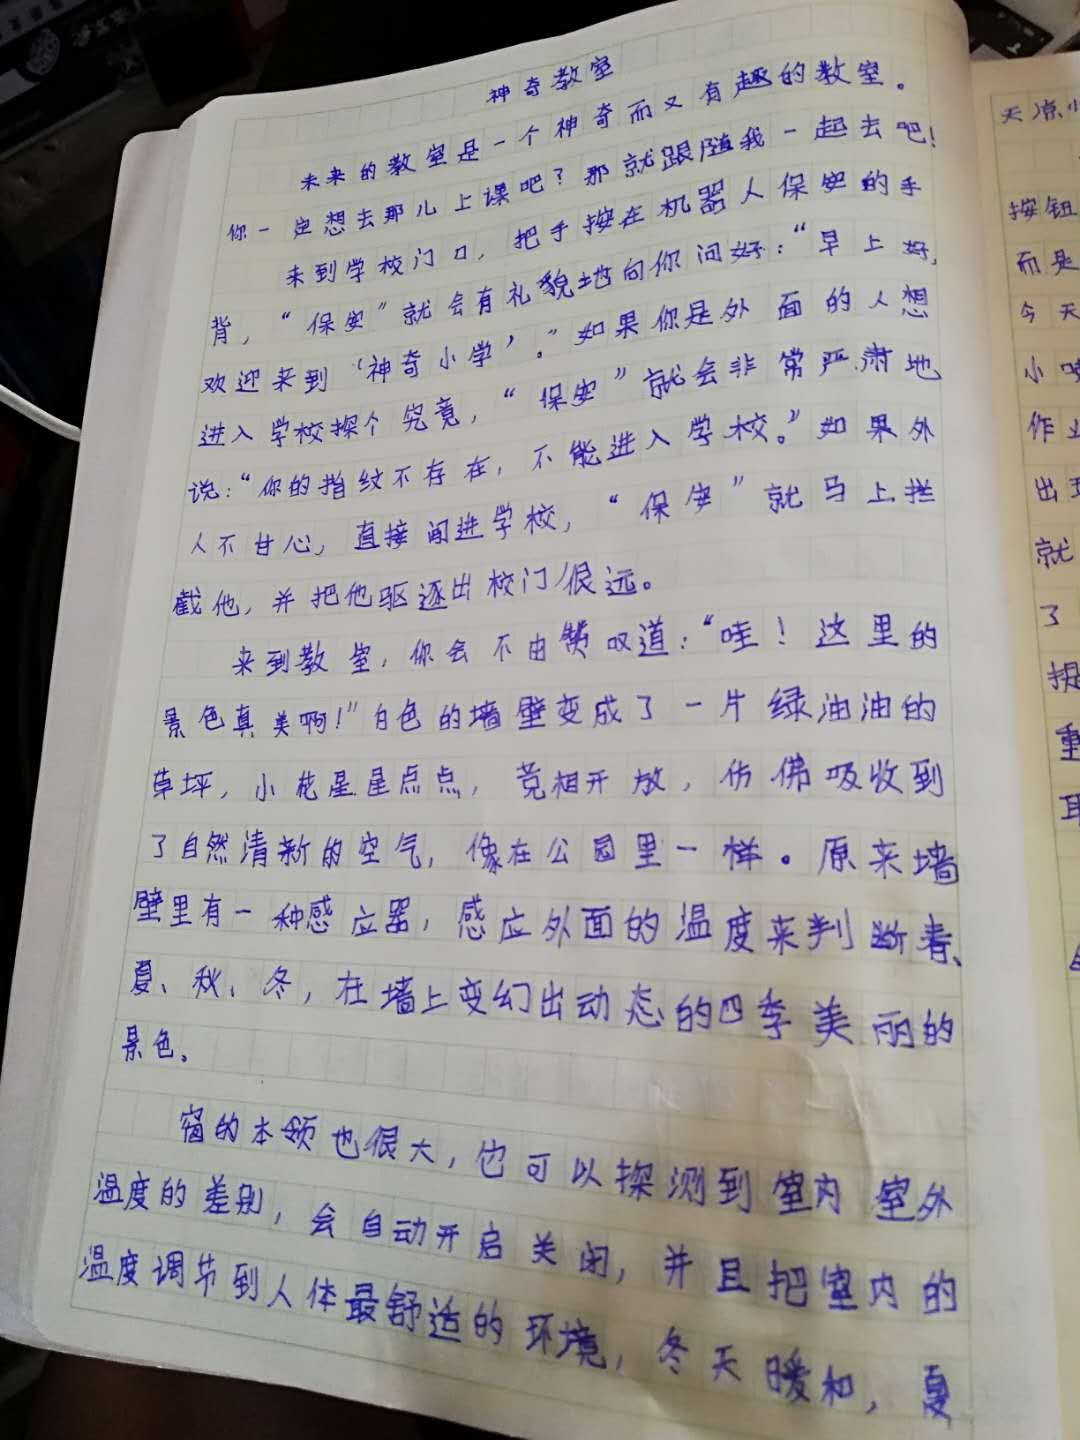 神奇教室
未来的教室是一个神奇而又有趣的教室。
你一定想去那儿上课吧？那就跟随我一起去吧！
来到学校门口，把手按在机器人保安的手
背，“保安”就会有礼貌地向你问好：“早上好，
欢迎来到‘神奇小学’。”如果你是外面的人想
进入学校探个究竟，“保安”就会非常严肃地
说：“你的指纹不存在，不能进入学校。”如果外
人不甘心，直接闯进学校，“保安”就马上拦
截他，并把他驱逐出校门很远。
来到教室，你会不由赞叹道：“哇！这里的
景色真美啊！”白色的墙壁变成了一片绿油油的
草坪，小花星星点点，竞相开放，仿佛吸收到
了自然清新的空气，像在公园里一样。原来墙
壁里有一种感应器，感应外面的温度来判断春、
夏、秋、冬，在墙上变幻出动态的四季美丽的
景色。
窗的本领也很大，它可以探测到室内室外
温度的差别，会自动开启关闭，并且把室内的
温度调节到人体最舒适的环境，冬天暖和，夏
天凉
按钮
而是
今天
小
作业
出现
就
了
捉
重
耳